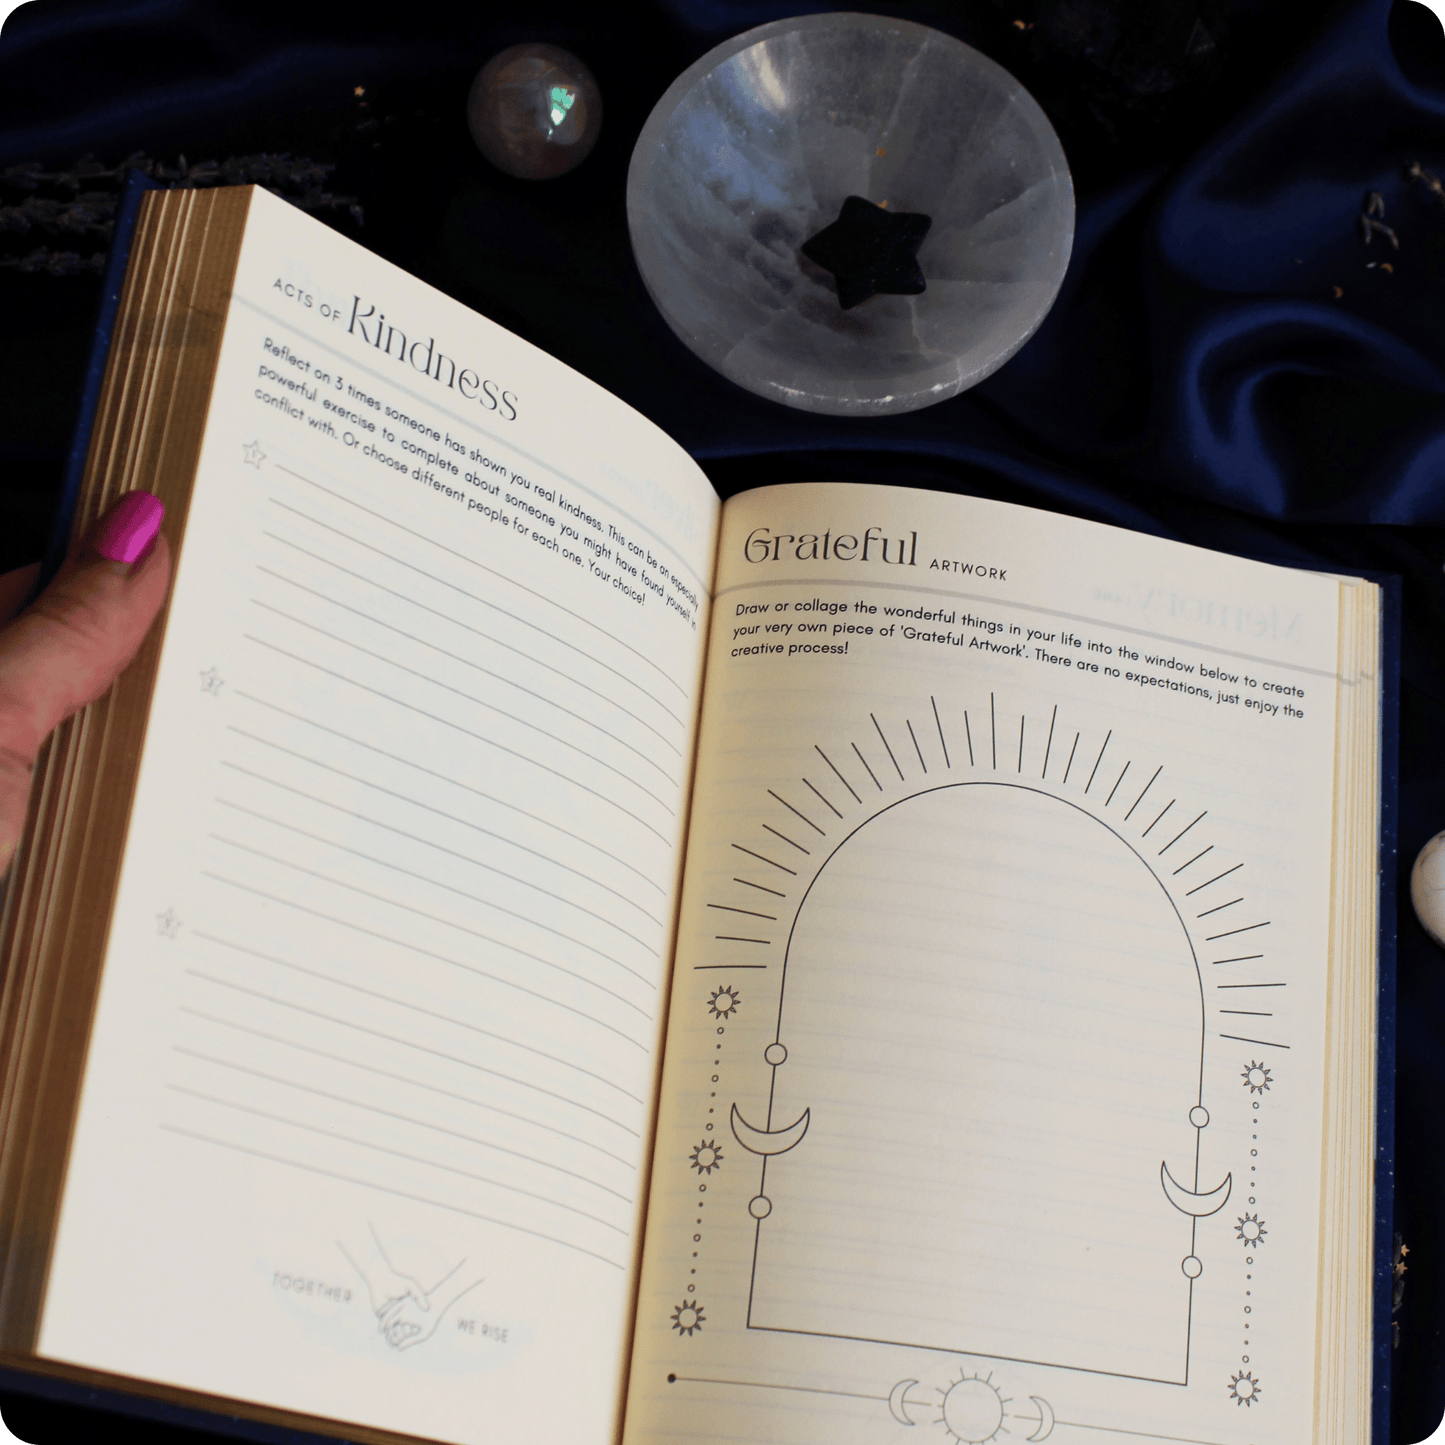 ACTS OF Kindness
Reflect on 3 times someone has shown you real kindness. This can be an especially
powerful exercise to complete about someone you might have found yourself in
conflict with. Or choose different people for each one. Your choice!
1
2
3
TOGETHER
WE RISE
Grateful ARTWORK
Draw or collage the wonderful things in your life into the window below to create
your very own piece of 'Grateful Artwork'. There are no expectations, just enjoy the
creative process!